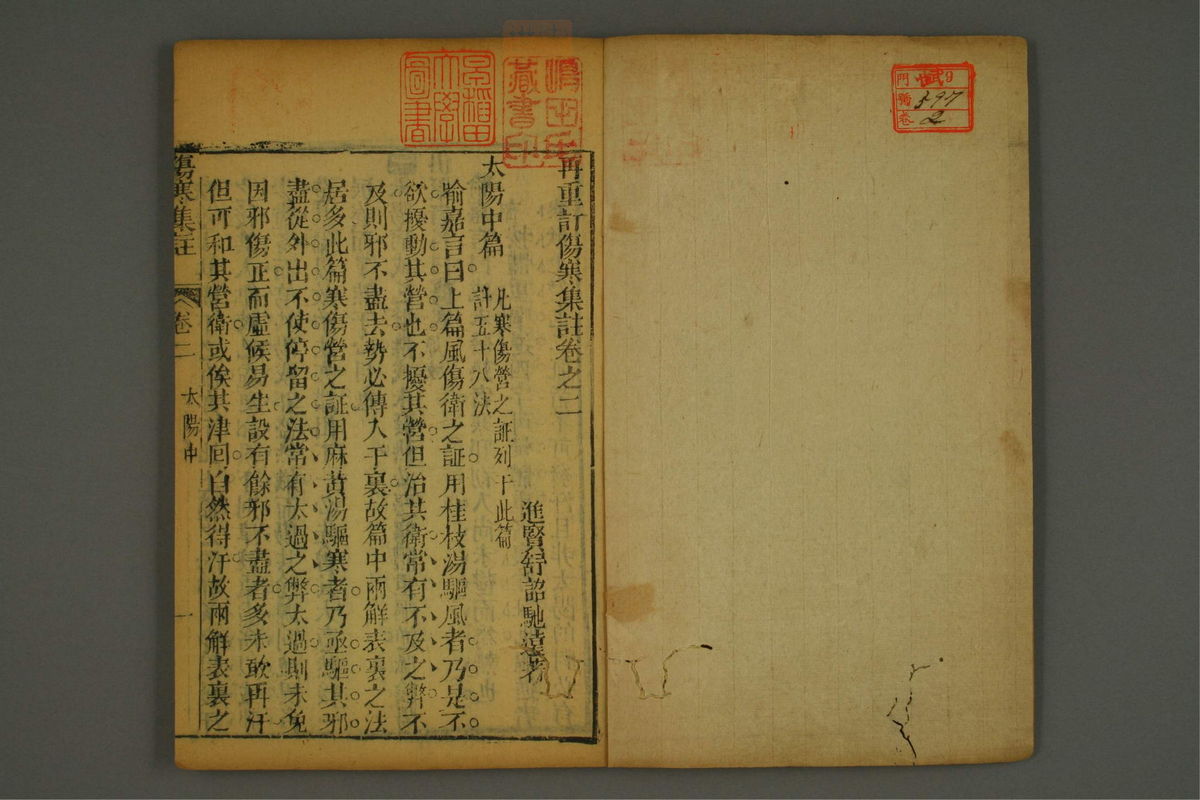 門 9
號 397
卷 2
早稻田大學圖書
藏書印
再重訂傷寒集註卷之二
進賢舒詔馳遠著
太陽中篇 凡寒傷營之証列于此篇
計五十八法
喻嘉言曰上篇風傷衛之証用桂枝湯驅風者乃是不
欲擾動其營也不擾其營但治其衛常有不及之弊不
及則邪不盡去勢必傳入于裏故篇中兩解表裏之法
居多此篇寒傷營之証用麻黃湯驅寒者乃亟驅其邪
盡從外出不使停留之法常有太過之弊太過則未免
因邪傷正而虛候易生設有餘邪不盡者多未敢再汗
但可和其營衛或俟其津回自然得汗故兩解表裏之
傷寒集註 卷二 太陽中 一